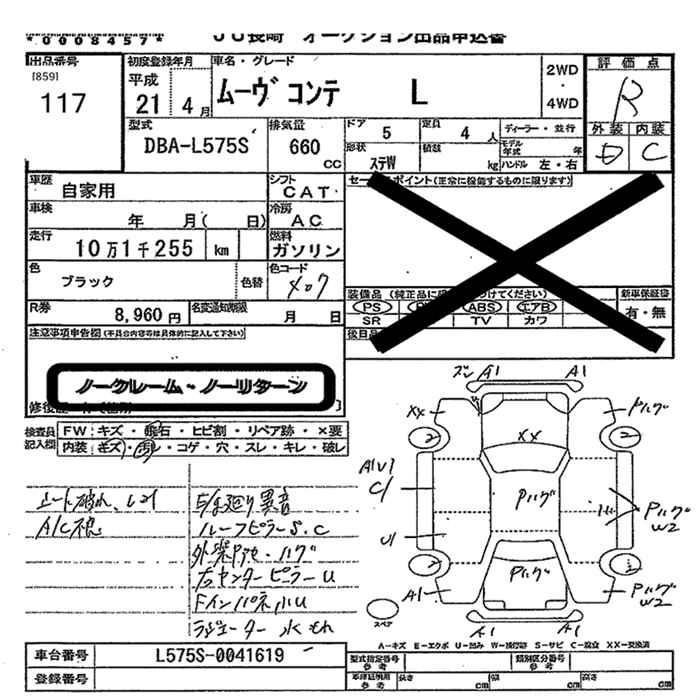 *0008457*
JU長崎 オークション出品申込書
出品番号
[859]
117
初度登録年月
平成
21 4月
車名・グレード
ムーヴ コンテ L
2WD
・
4WD
評価点
R
外装 内装
D C
型式
DBA-L575S
排気量
660
CC
ドア 5
定員 4 人
ディーラー・並行
形状 ステW
積載 kg
モデル年式 年
ハンドル 左・右
車歴 自家用
シフト CAT
車検 年 月( 日)
冷房 AC
走行 10万1千255 km
燃料 ガソリン
色 ブラック
色替
色コード X07
R券 8,960円
名変通知期限 月 日
セールスポイント(正常に機能するものに限ります)
装備品
PS ABS エアB
SR TV カワ
新車保証書
有・無
後日品
注意事項申告欄(不具合内容等は具体的に記入して下さい)
ノークレーム・ノーリターン
検査員記入欄
FW:キズ・飛石・ヒビ割・リペア跡・×要
内装:キズ・汚レ・コゲ・穴・スレ・キレ・破レ
シート破れ、
A/C不良
異音
ルーフピラーS.C
左センターピラーU
Fインパネ小U
ラジエーター水もれ
A1 A1
XX
2
A1V1
C1
U1
A1
XX
Pハゲ
Pハゲ
Pハゲ
2
Pハゲ
W2
Pハゲ
W2
A1 A1
スペア
A-キズ E-エクボ U-凹み W-補修跡 S-サビ C-腐食 XX-交換済
車台番号 L575S-0041619
登録番号
型式指定番号 参考
類別区分番号 参考
車体証明用 参考 長さ cm 幅 cm 高さ cm